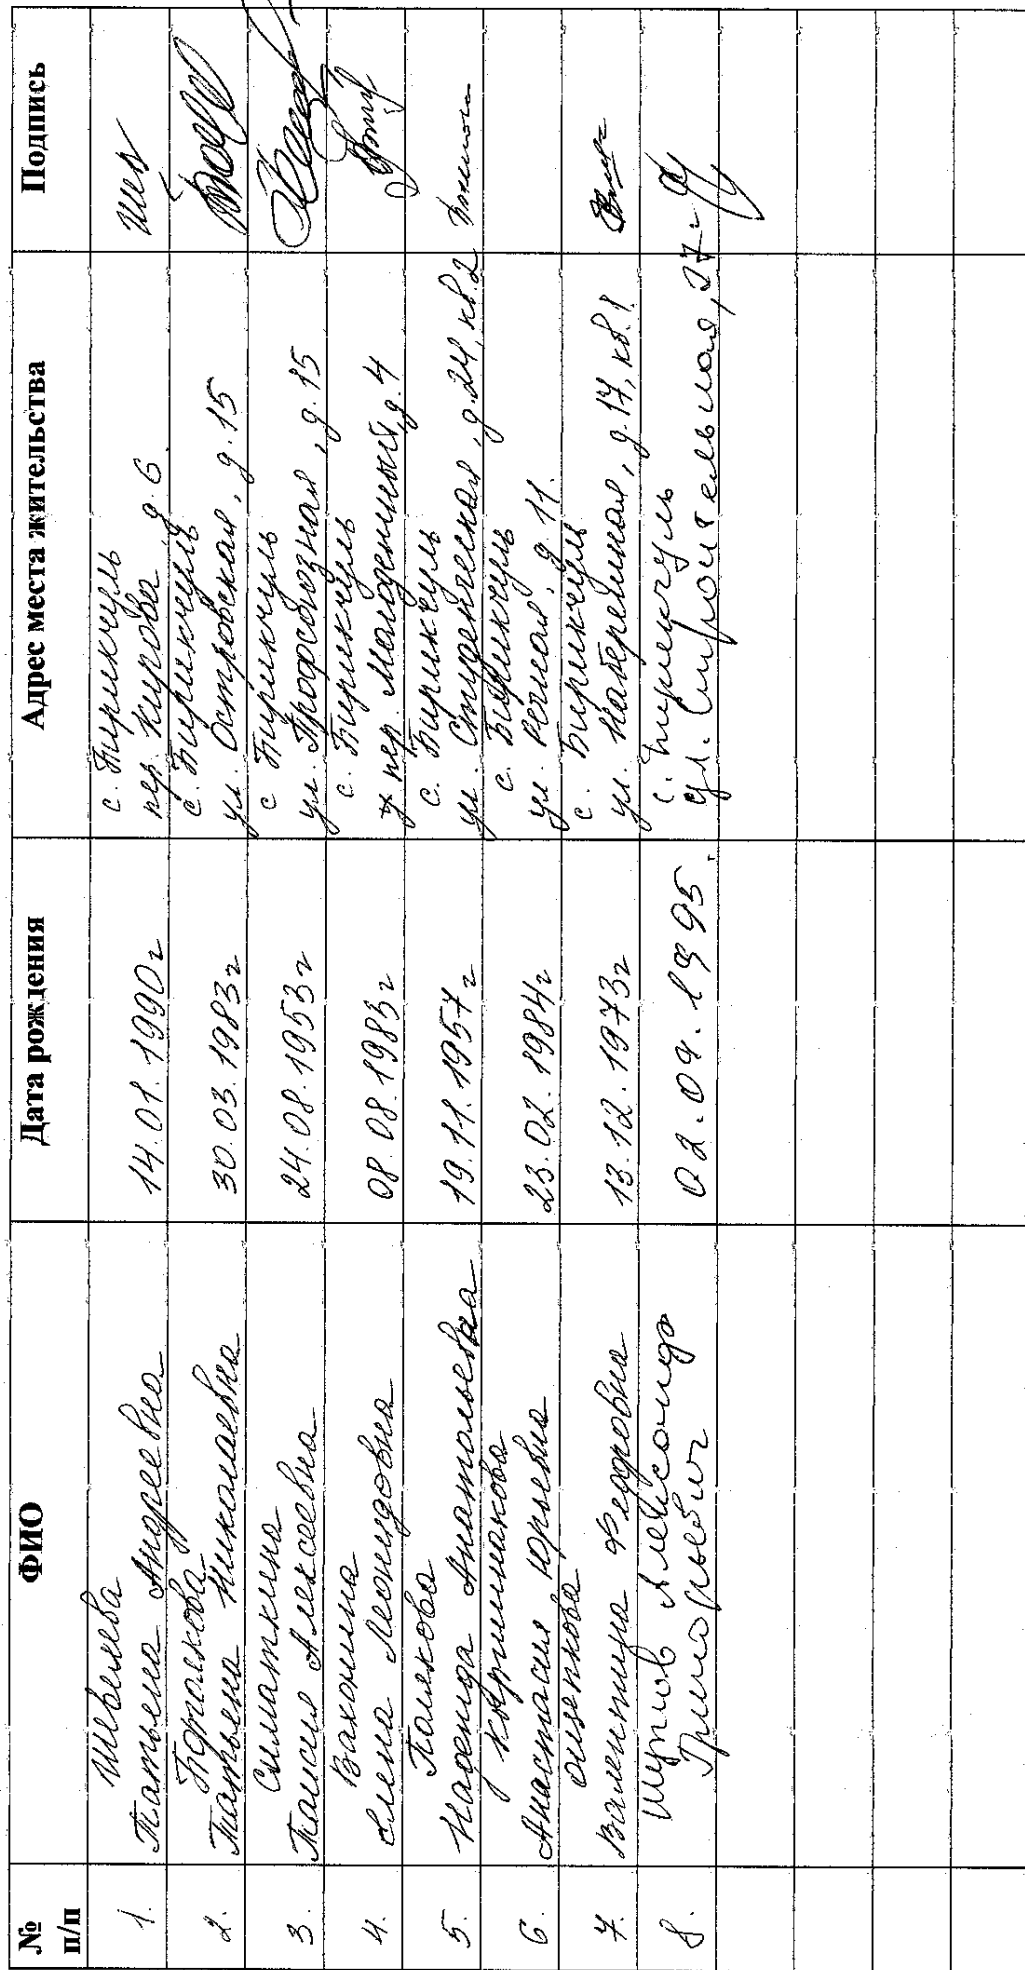 № п/п ФИО Дата рождения Адрес места жительства Подпись
1. Шевелева Татьяна Андреевна 14.01.1990г с. Бирикчуль пер. Кирова д. 6
2. Татьяна Николаевна 30.03.1983г с. Бирикчуль ул. Островская, д. 15
3. Симаткина Таисия Алексеевна 24.08.1953г с Бирикчуль ул. Профсоюзная, д. 15
4. Вахонина Елена Леонидовна 08.08.1983г с. Бирикчуль пер. Молодежный, д. 4
5. Полякова Надежда Анатольевна 19.11.1957г с. Бирикчуль ул. Студенческая, д. 24, кв. 2
6. Анастасия Юрьевна 23.02.1984г с. Бирикчуль ул. Речная, д. 11.
7. Валентина Федоровна 13.12.1973г с. Бирикчуль ул. Набережная, д. 17, кв. 1.
8. Александр Григорьевич 02.04.1995. с. Бирикчуль ул. Строительная, 27-